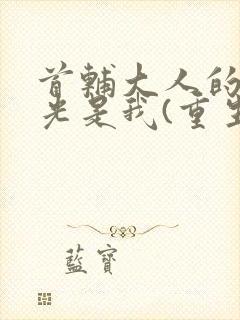 首輔大人的
光是我(重生
藍寶